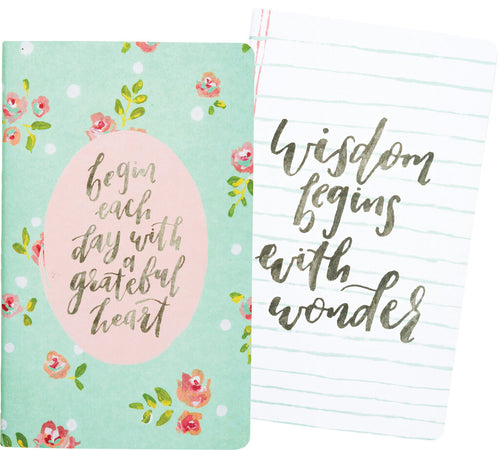 begin
each
day with
a
grateful
heart
wisdom
begins
with
wonder